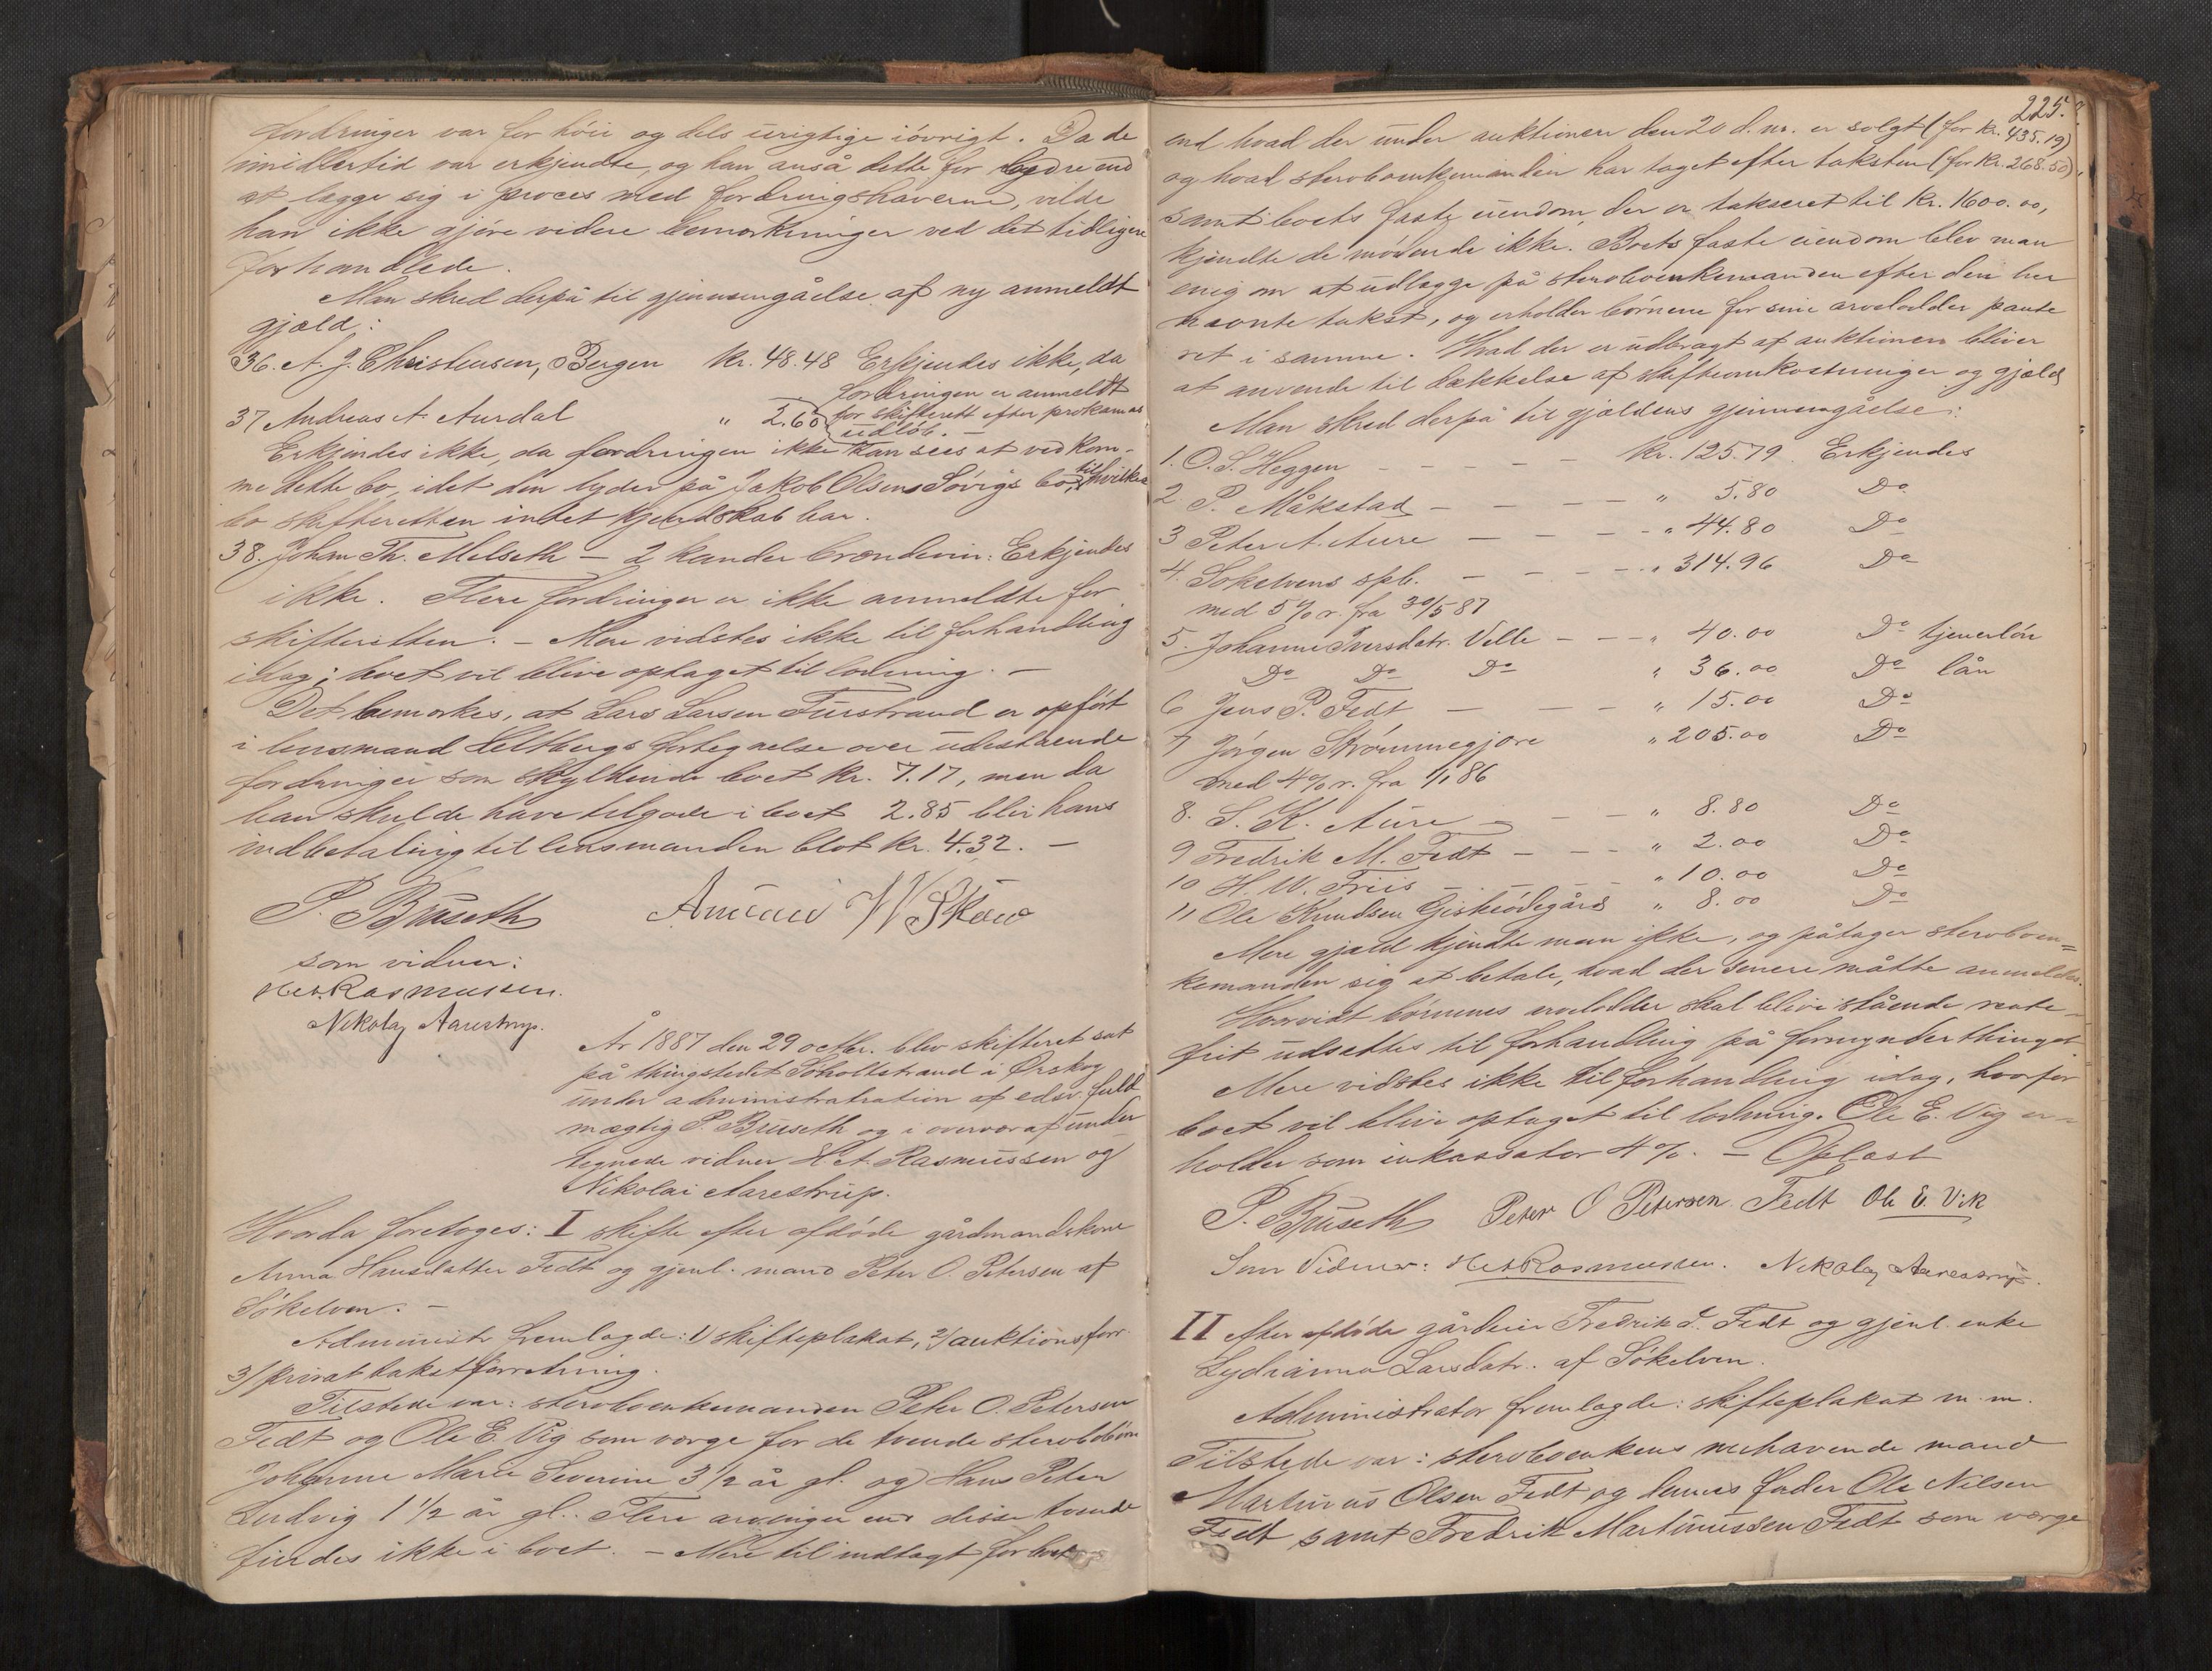 fordringer var for höie og dels urigtige iövrigt. Da de
imidlertid var erkjendte, og han anså dette for bedre end
at lægge sig i proces med fordringshaverne, vilde
han ikke gjöre videre bemærkninger ved det tidligere
forhandlede.
Man skred derpå til gjennemgåelse af ny anmeldt
gjæld:
36. A. J. Christensen, Bergen Kr. 48.48 Erkjendes ikke, da
fordringen er anmeldt
for skifteret efter proklamas
udlöb. —
37 Andreas A. Aurdal " 2.60
Erkjendes ikke, da fordringen ikke kan sees at vedkom-
me dette bo, idet den lyder på Jakob Olsens Sövigs bo, til hvilket
bo skifteretten intet kjendskab har.
38. Johan Th. Melseth — 2 kander brændevin: Erkjendes
ikke. Flere fordringer er ikke anmeldte for
skifteretten. — Mere vidstes ikke til forhandling
idag; boet vil blive optaget til lodning. —
Det bemærkes, at Lars Larsen Furstrand er opfört
i lensmand Heltbergs fortegnelse over udestående
fordringer som skyldende boet kr. 7.17, men da
han skulde have tilgode i boet 2.85 blir hans
indbetaling til lensmanden blot kr. 4.32. —
P. Bruseth W Skow
som vidner:
H. A. Rasmussen.
Nikolay Aarestrup.
År 1887 den 29 octbr. blev skifteret sat
på thingstedet Sjöholtstrand i Ørskog
under administratration af edsv. fuld-
mægtig P. Bruseth og i overvær af under-
tegnede vidner H A Rasmussen og
Nikolai Aarestrup.
Hvorda foretoges: I skifte efter afdöde gårdmandskone
Anna Hansdatter Fedt og gjenl. mand Peter O. Petersen af
Sökelven. —
Administr. fremlagde: 1) skifteplakat, 2) auktionsforr.
3) privat takstforretning.
Tilstede var: stervboenkemanden Peter O. Petersen
Fedt og Ole E. Vig som værge for de tvende stervbobörn
Johanne Marie Severine 3 1/2 år gl. og Hans Peter
Ludvig 1 1/2 år gl.. Flere arvinger end disse tvende
findes ikke i boet. — Mere til indtægt for boet
225.
end hvad der under auktionen den 20 d. m. er solgt (for kr. 435.19)
og hvad stervboenkemanden har taget efter taksten (for Kr. 268.50)
samt boets faste eiendom, der er takseret til Kr. 1600.00,
kjendte de mödende ikke. Boets faste eiendom blev man
enig om at udlægge på stervboenkemanden efter den her
nævnte takst, og erholder börnene for sine arvelodder pante
ret i samme. Hvad der er udbragt af auktionen bliver
at anvende til dækkelse af skifteomkostninger og gjæld
Man skred derpå til gjældens gjennemgåelse:
1. O. S. Heggen — — — — Kr. 125.79 Erkjendes
2 P. Måkstad — — — — " 5.80 Do
3 Peter A. Aure — — — — " 44.80 Do
4. Sökelvens spb. — — — — " 314.96 Do
med 5 % r. fra 30/5 87
5. Johanne Iversdatr. Velle — — — " 40.00 Do tjenerlön
Do Do Do " 36.00 Do lån
6 Jens P. Fedt — — — " 15.00 Do
7 Jörgen Strömmegjære " 205.00 Do
med 4 % r. fra 1/1 86
8. S. K. Aure — — — " 8.80 Do
9 Fredrik M. Fedt — — — " 2.00 Do
10 H. W. Friis — — " 10.00 Do
11 Ole Knudsen Giskeödegård " 8.00 Do
Mere gjæld kjendte man ikke, og påtager stervboen=
kemanden sig at betale, hvad der senere måtte anmeldes.
Hvorvidt börnenes arvelodder skal blive stående rente-
frit udsættes til forhandling på formynderthinget
Mere vidstes ikke til forhandling idag, hvorfor
boet vil blive optaget til lodning. Ole E. Vig er-
holder som inkassator 4 %. — Oplæst
P. Bruseth Peter O Petersen Fedt Ole E. Vik
Som Vidner: H. A. Rasmussen. Nikolay Aarestrup.
II efter afdöde gårdeier Fredrik J. Fedt og gjenl. enke
Lydianna Larsdatr. af Sökelven.
Administrator fremlagde: skifteplakat m. m.
Tilstede var: stervboenkens nuhavende mand
Martinus Olsen Fedt og dennes fader Ole Nilsen
Fedt samt Fredrik Martinussen Fedt som værge